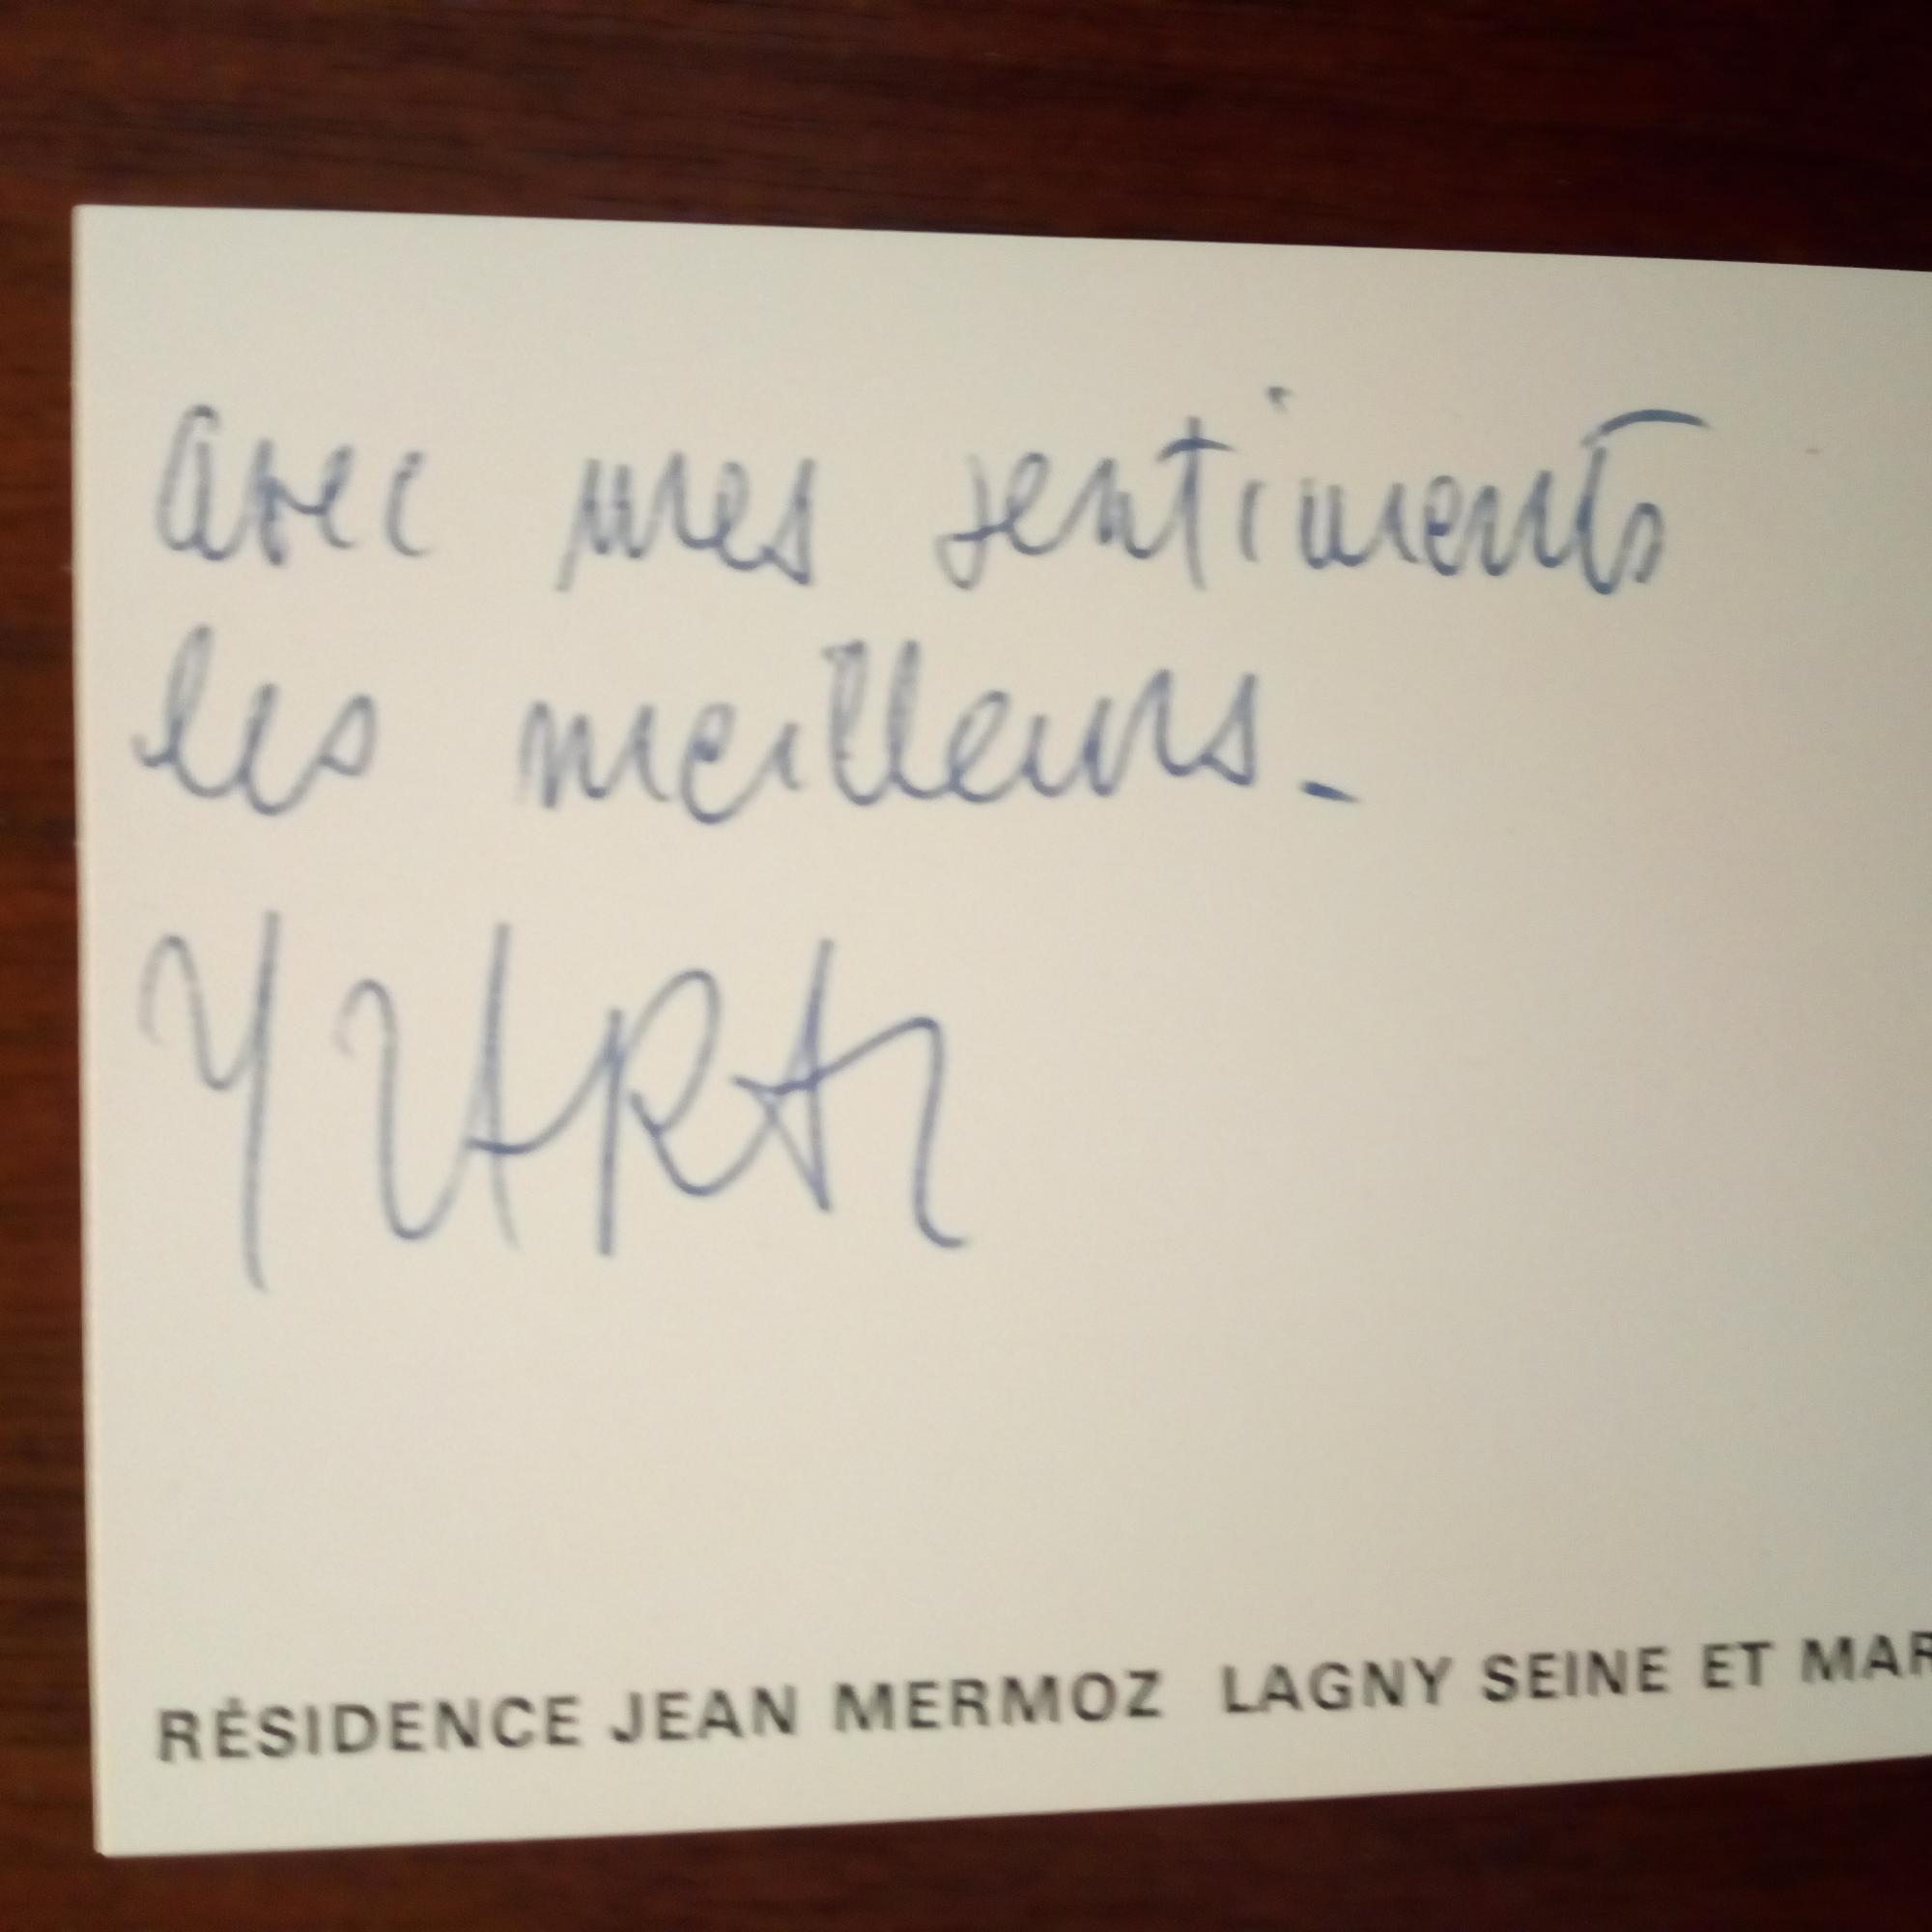 avec mes sentiments
les meilleurs_
RÉSIDENCE JEAN MERMOZ LAGNY SEINE ET MAR